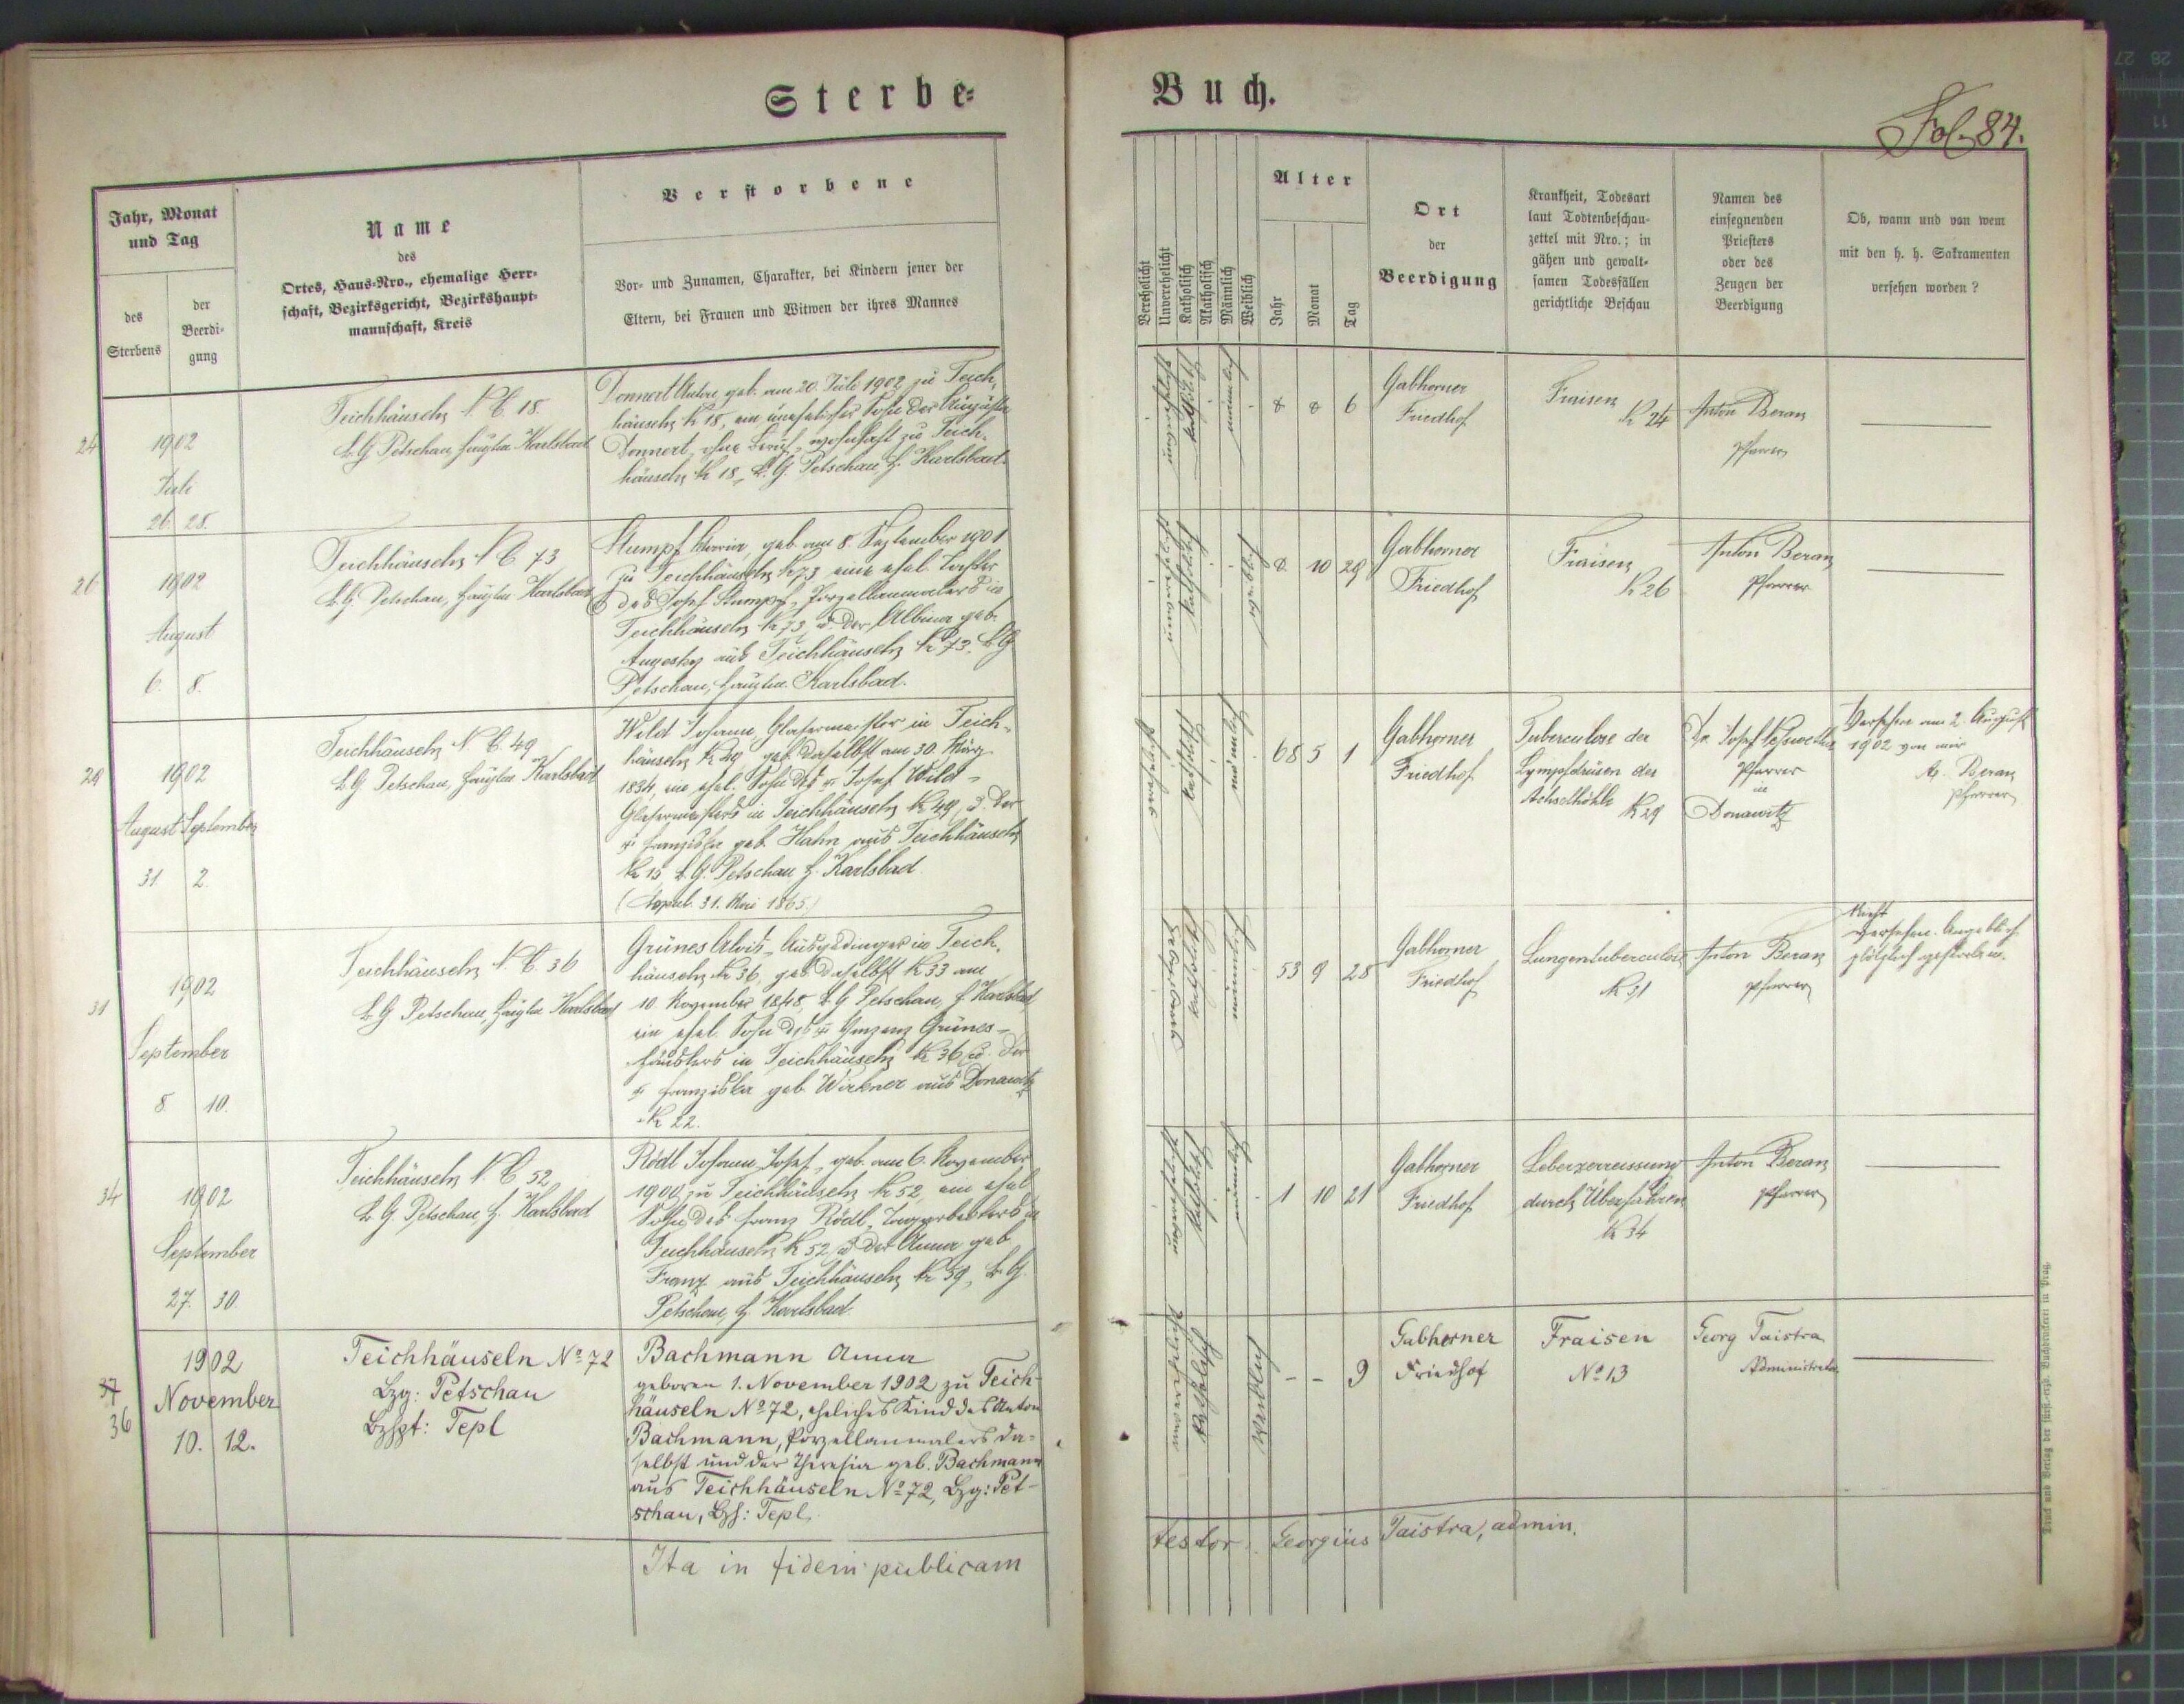 Sterbe-
Buch.
Fol. 84.
Jahr, Monat
und Tag
des
Sterbens
der
Beerdi-
gung
Name
des
Ortes, Haus-Nro., ehemalige Herr-
schaft, Bezirksgericht, Bezirkshaupt-
mannschaft, Kreis
Verstorbene
Vor- und Zunamen, Charakter, bei Kindern jener der
Eltern, bei Frauen und Witwen der ihres Mannes
Verehelicht
Unverehelicht
Katholisch
Akatholisch
Männlich
Weiblich
Alter
Jahr
Monat
Tag
Ort
der
Beerdigung
Krankheit, Todesart
laut Todtenbeschau-
zettel mit Nro.; in
gähen und gewalt-
samen Todesfällen
gerichtliche Beschau
Namen des
einsegnenden
Priesters
oder des
Zeugen der
Beerdigung
Ob, wann und von wem
mit den h. h. Sakramenten
versehen worden?
24
1902
Juli
26. 28.
Teichhäuseln N. C. 18.
B. G. Petschau Karlsbad
Donnert Anton, geb. am 20. Juli 1902 zu Teich-
häuseln N 18, ein unehelicher Sohn der Auguste
Donnert, wohnhaft zu Teich-
häuseln N 18, B. G. Petschau, H. Karlsbad.
katholisch
männlich
6
Gabhorner
Friedhof
Fraisen
N 24
Anton Beran
Pfarrer
26
1902
August
6. 8.
Teichhäuseln N. C. 73
B. G. Petschau, Karlsbad
Stumpf Maria, geb. am 8. September 1901
zu Teichhäuseln N 73 eine ehel. Tochter
des Josef Stumpf, Porzellanmalers in
Teichhäuseln N 73 u. der Albina geb.
aus Teichhäuseln N 73. B. G.
Petschau, Karlsbad.
katholisch
weiblich
10 29
Gabhorner
Friedhof
Fraisen
N 26
Anton Beran
Pfarrer
29
1902
August September
31. 2.
Teichhäuseln N. C. 49
B. G. Petschau, Karlsbad
Wild Johann, Glasermeister in Teich-
häuseln N 49, geb. daselbst am 30. März
1834, ein ehel. Sohn des † Josef Wild –
Glasermeisters in Teichhäuseln N 49, u. der
† Franziska geb. Hahn aus Teichhäuseln
N 15, B. G. Petschau H. Karlsbad.
(Copul. 31. Mai 1865.)
katholisch
männlich
68 5 1
Gabhorner
Friedhof
Tuberculose der
Lympfdrüsen der
Achselhöhle N 29
Pfarrer
in
Donawitz
Versehen am 2. August
1902 von mir
A. Beran
Pfarrer
31
1902
September
8. 10.
Teichhäuseln N. C. 36
B. G. Petschau, Karlsbad
Grünes Alois, Ausgedinger in Teich-
häuseln N 36, geb. daselbst N 33 am
10. November 1848, B. G. Petschau, H. Karlsbad
ein ehel. Sohn des † Vinzenz Grünes –
Häuslers in Teichhäuseln N 36 u. der
† Franziska geb. Wirkner aus Donawitz
N 22.
katholisch
männlich
53 9 28
Gabhorner
Friedhof
Lungentuberculose
N 31
Anton Beran
Pfarrer
Nicht
versehen. Angeblich
plötzlich gestorben.
34
1902
September
27. 30.
Teichhäuseln N. C. 52
B. G. Petschau, H. Karlsbad
Rödl Johann Josef, geb. am 6. November
1900 zu Teichhäuseln N 52, ein ehel.
Sohn des Franz Rödl, Tagarbeiters in
Teichhäuseln N 52, u. der Anna geb.
Franz aus Teichhäuseln N 59, B. G.
Petschau, H. Karlsbad.
katholisch
männlich
1 10 21
Gabhorner
Friedhof
Leberzerreissung
durch Überfahren
N 34
Anton Beran
Pfarrer
37
36
1902
November
10. 12.
Teichhäuseln No 72
Bzg: Petschau
Bzhpt: Tepl
Bachmann Anna
geboren 1. November 1902 zu Teich-
häuseln No 72, eheliches Kind des Anton
Bachmann, Porzellanmalers da-
selbst und der Theresia geb. Bachmann
aus Teichhäuseln No 72, Bzg: Pet-
schau, Bzh: Tepl.
katholisch
weiblich
– – 9
Gabhorner
Friedhof
Fraisen
No 13
Georg Taistra
Administrator
Ita in fidem publicam
testor. Georgius Taistra, admin.
Druck und Verlag der fürst.-erzb. Buchdruckerei in Prag.